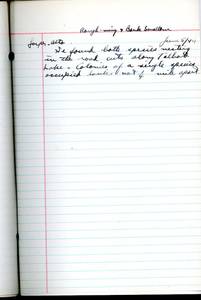 Rough-wing & Bank Swallow
June 5/44
We found both species nesting
in the road cuts along Talbot
Lake - Colonies of a single species
occupied banks not ½ mile apart